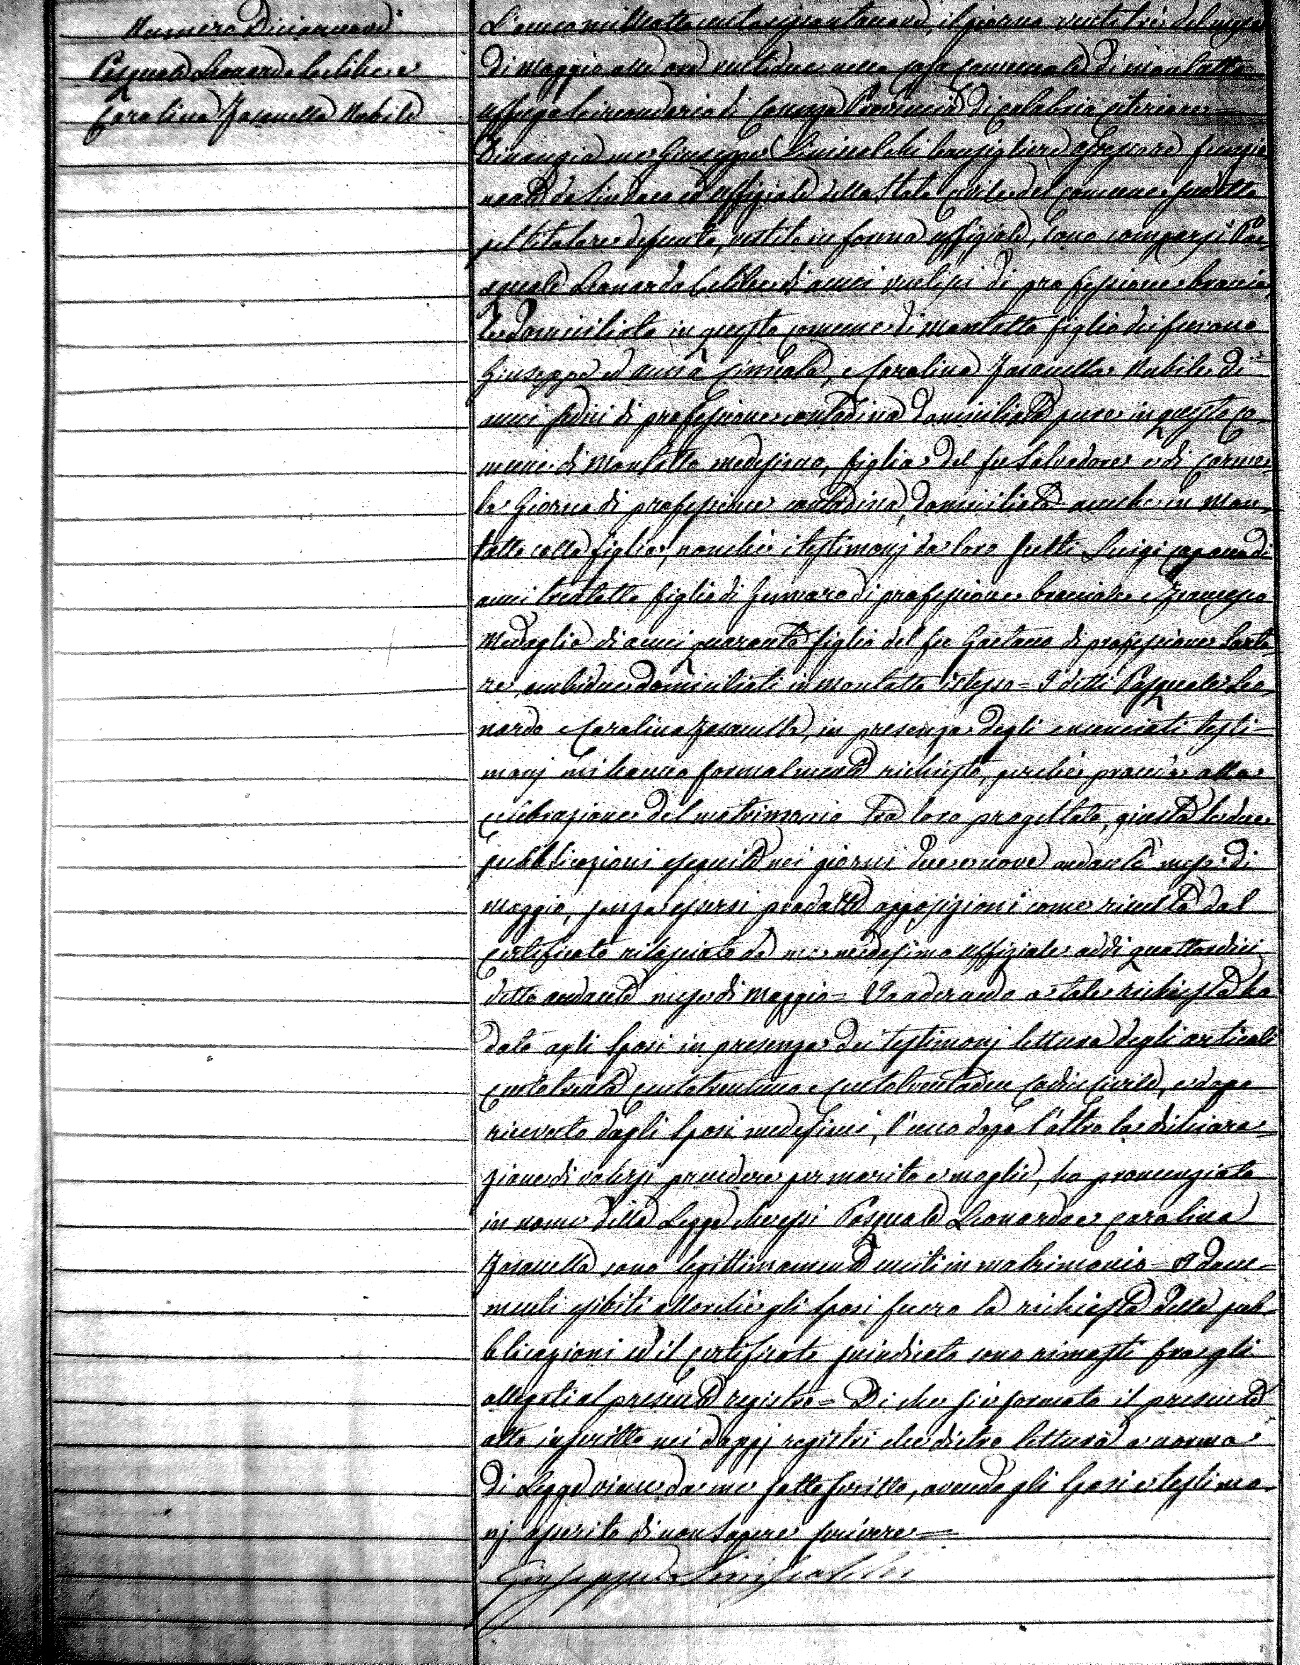 Numero Diciannove
Pasquale Leonardo celibe e
Carolina Iaquella Nubile
L'anno mille ottocento sessantanove, il giorno ventitré del mese
di maggio alle ore ventidue nella casa comunale di Montalto
Uffugo Circondario di Cosenza Provincia di Calabria citeriore
Dinanzi a me Giuseppe Consigliere Assessore funzio
nante da Sindaco ed Uffiziale dello Stato Civile del comune suddetto
pel titolare defunto, vestito in forma uffiziale, sono comparsi Pa
squale Leonardo celibe di anni ventisei di professione braccia
le domiciliato in questo comune di Montalto figlio dei furono
Giuseppe ed Anna e Carolina Nubile di
anni sedici di professione contadina domiciliata pure in questo co
mune di Montalto medesimo, figlia del fu Salvadore e di Carme
la Giorno di professione contadina, domiciliata anche in Mon
talto colla figlia, nonché i testimonj da loro scelti Luigi Capano di
anni trentotto figlio di Gennaro di professione bracciale e Francesco
Medaglia di anni quaranta figlio del fu Gaetano di professione sarto
re, ambidue domiciliati in Montalto istesso = I detti Pasquale Leo
nardo e Carolina in presenza degli enunciati testi
monj mi hanno formalmente richiesto, perché proceda alla
celebrazione del matrimonio tra loro progettato, giusta le due
pubblicazioni eseguite nei giorni due e nove andante mese di
maggio, senza essersi prodotte opposizioni come risulta dal
certificato rilasciato da me medesimo Uffiziale addì quattordici
detto andante mese di Maggio = Io aderendo a tale richiesta ho
dato agli sposi in presenza dei testimonj lettura degli articoli
centotrenta centotrentuno e centotrentadue Codice Civile, e dopo
ricevuto dagli sposi medesimi, l'uno dopo l'altro la dichiara=
zione di volersi prendere per marito e moglie, ho pronunziato
in nome della Legge che essi Pasquale Leonardo e Carolina
sono legittimamente uniti in matrimonio = I docu=
menti esibiti allorché gli sposi fecero la richiesta delle pub
blicazioni ed il certificato suindicato sono rimasti fra gli
allegati al presente registro = Di che si è formato il presente
atto inscritto nei doppj registri che dietro lettura a norma
di Legge viene da me sottoscritto, avendo gli sposi e testimo
nj asserito di non sapere scrivere =
Giuseppe